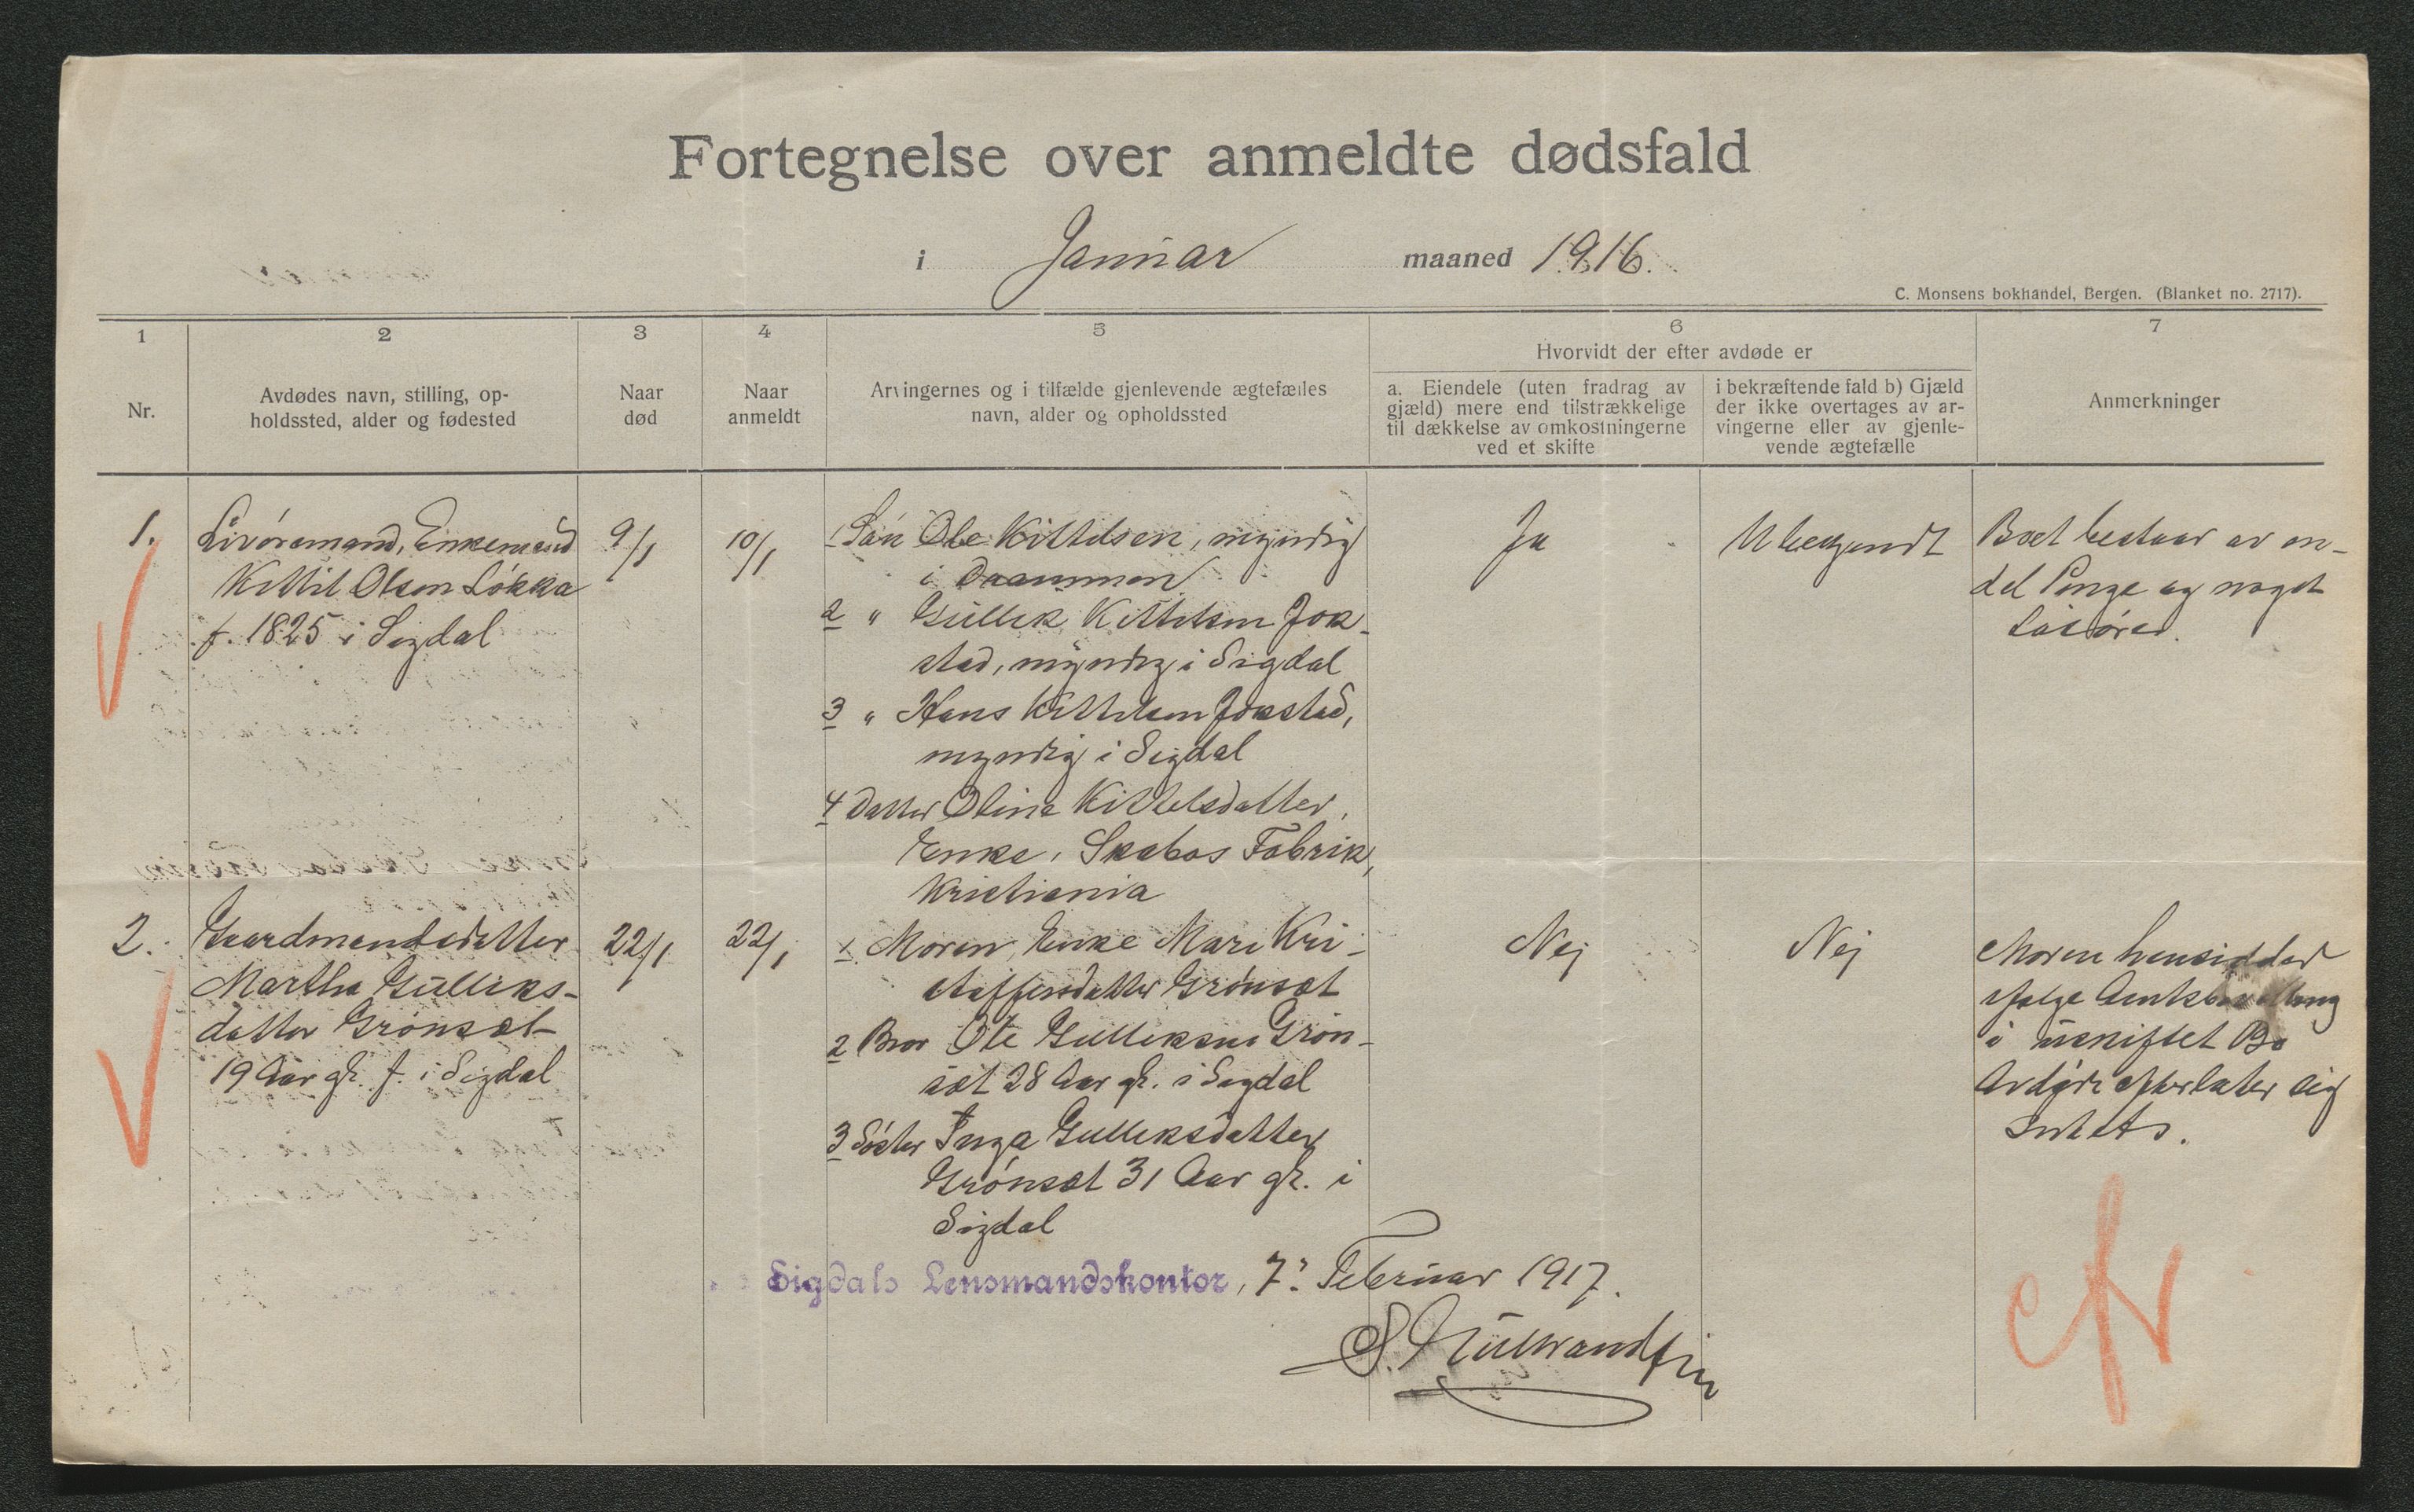 Fortegnelse over anmeldte dødsfald
i Januar maaned 1916.
C. Monsens bokhandel, Bergen. (Blanket no. 2717).
1
2
3
4
5
6
7
Nr.
Avdødes navn, stilling, op-
holdssted, alder og fødested
Naar
død
Naar
anmeldt
Arvingernes og i tilfælde gjenlevende ægtefælles
navn, alder og opholdssted
Hvorvidt der efter avdøde er
a. Eiendele (uten fradrag av
gjæld) mere end tilstrækkelige
til dækkelse av omkostningerne
ved et skifte
i bekræftende fald b) Gjæld
der ikke overtages av ar-
vingerne eller av gjenle-
vende ægtefælle
Anmerkninger
1.
Livøremand, Enkemand
Kittil Olsen Løkka
f. 1825 i Sigdal
9/1
10/1
1 Søn Ole Kittelsen, myndig
i Drammen
2 " Gullik Kittelsen Jok-
stad, myndig i Sigdal
3 " Hans Kittelsen Jokstad,
myndig i Sigdal
4 Datter Oline Kittelsdatter,
Enke, Skabos Fabrik,
Kristiania
Ja
Ubegyndt
Boet bestaar av en-
del Penge og noget
Løsøre.
2.
Gaardmandsdatter
Martha Gulliks-
datter Grønsæt
19 Aar gl. f. i Sigdal
22/1
22/1
1 Moren, Enke Mari Kri-
stoffersdatter Grønsæt
2 Bror Ole Gulliksen Grøn-
sæt 28 Aar gl. i Sigdal
3 Søster Inga Gulliksdatter
Grønsæt 31 Aar gl. i
Sigdal
Nej
Nej
Moren hensidder
ifølge Amtsbevilling
i uskiftet Bo
Avdøde efterlater sig
Intet.
Sigdals Lensmandskontor, 7. Februar 1917.